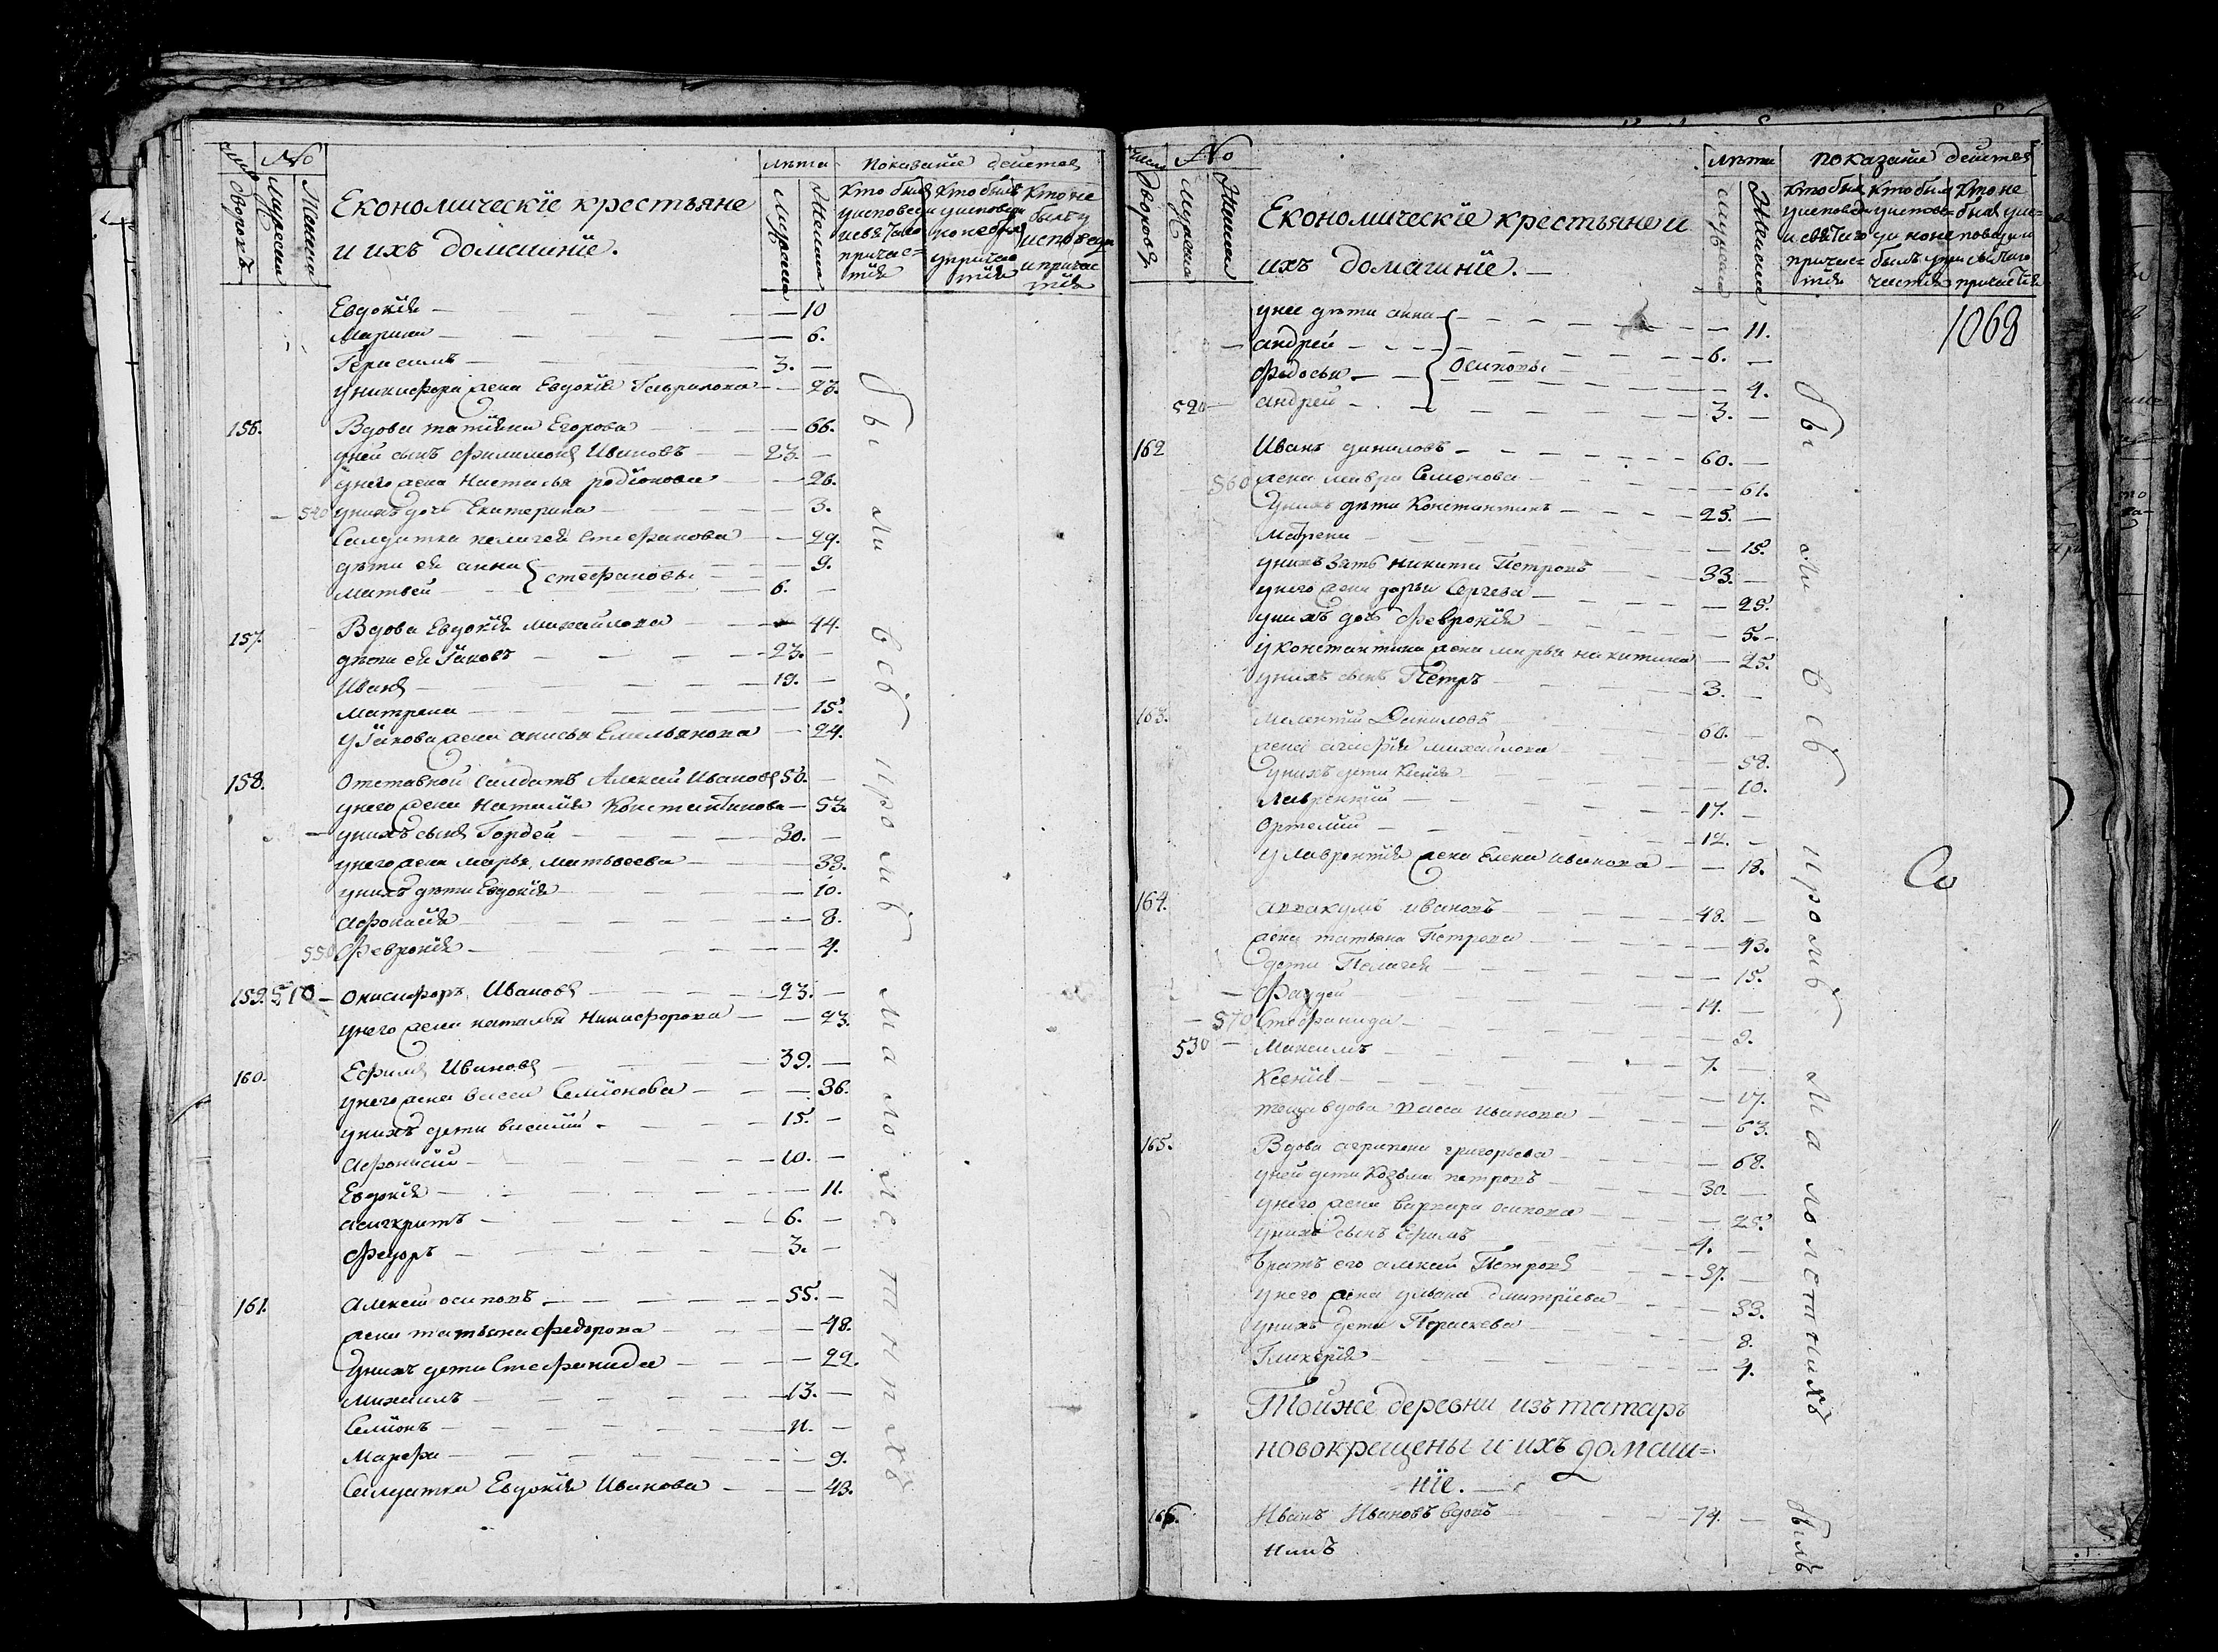 число дворовъ
№
Мужеска
Женска
Економическїе крестьяне
и ихъ домашнїе.
лѣта
Мужеска
Женска
показанїе действа
Кто былъ у исповеди и святаго причастїя
Кто былъ у исповеди но не былъ у причастїя
Кто не былъ у исповеди и причастїя
Евдокїя — 10
Марина — 6.
Герасимъ — 3.
у никифора жена Евдокїя Гаврилова — 23.
156. Вдова татїяна Егорова — 66.
у ней сынъ Филимонъ Ивановъ — 23.
у него жена Настасья родїонова — 26.
540 у нихъ дочь Екатерина — 3.
Салдатка пелагея стефанова — 29.
дѣти ея анна — 9.
стефановы
матвей — 6.
157. Вдова Евдокїя михайлова — 44.
дѣти ея Їаковъ — 23.
Иванъ — 19.
матрена — 15.
у Їакова жена анисья Емельянова — 24.
158. Отставной салдатъ Алексей Ивановъ 56.
у него жена Наталїя Константинова — 53.
у нихъ сынъ Гордей — 30.
у него жена марья матвеева — 33.
у нихъ дѣти Евдокїя — 10.
афонасїя — 8.
550 Феврония — 4.
159. 510 — Онисифоръ Ивановъ — 23.
у него жена наталья Никифорова — 23.
160. Ефимъ Ивановъ — 39.
у него жена васса Семїонова — 36.
у нихъ дети василий — 15.
афонасий — 10.
Евдокїя — 11.
асигкритъ — 6.
Федоръ — 3.
161. алексей осиповъ — 55.
жена татьяна федорова — 48.
у нихъ дети Стефанида — 22.
михаилъ — 13.
Семїонъ — 11.
Марфа — 9.
Салдатка Евдокїя Иванова — 43.
бы ли всѣ кромѣ малолетныхъ
число дворовъ
№
Мужеска
Женска
Економическїе крестьяне и
ихъ домашнїе. —
лѣта
мужеска
Женска
показанїе действа
Кто былъ у исповеди и святаго причастїя
Кто былъ у исповеди но не былъ у причастїя
Кто не былъ у исповеди и святаго причастїя
1068
у нее дѣти анна — 11.
андрей — 6.
Осиповы
Федосья — 4.
520 — андрей — 3.
162 Иванъ даниловъ — 60.
560 жена мавра Семенова — 61.
у нихъ дѣти Константинъ — 25.
Матрена — 15.
у нихъ зять никита Петровъ — 33.
у него жена дарья Сергева — 25.
у нихъ дочь Феврония — 5.
у константина жена марья никитина — 25.
у нихъ сынъ Петръ — 3.
163. Мелентий Даниловъ — 60.
жена агафїя михайлова — 58.
у нихъ дети — 10.
Лаврентий — 17.
Ортемий — 12.
у лаврентїя жена Елена иванова — 18.
Со
164. аввакумъ ивановъ — 48.
жена татьяна Петрова — 43.
дети Пелагея — 15.
Фаддей — 14.
570 Стефанида — 9.
530 — Максимъ — 7.
Ксенїя — 17.
теща вдова васса иванова — 63.
165. Вдова агрипена григорьева — 68.
у ней дети Козьма петровъ — 30.
у него жена варвара осипова — 25.
у нихъ сынъ Ефимъ — 4.
братъ его алексей Петровъ — 37.
у него жена ульяна дмитрїева — 33.
у нихъ дети Параскева — 8.
Гликерїя — 4.
Тойже деревни изъ татаръ
новокрещены и ихъ домаш=
нїе. —
166. Иванъ Ивановъ вдовъ — 74.
бы ли всѣ кромѣ малолетныхъ
былъ